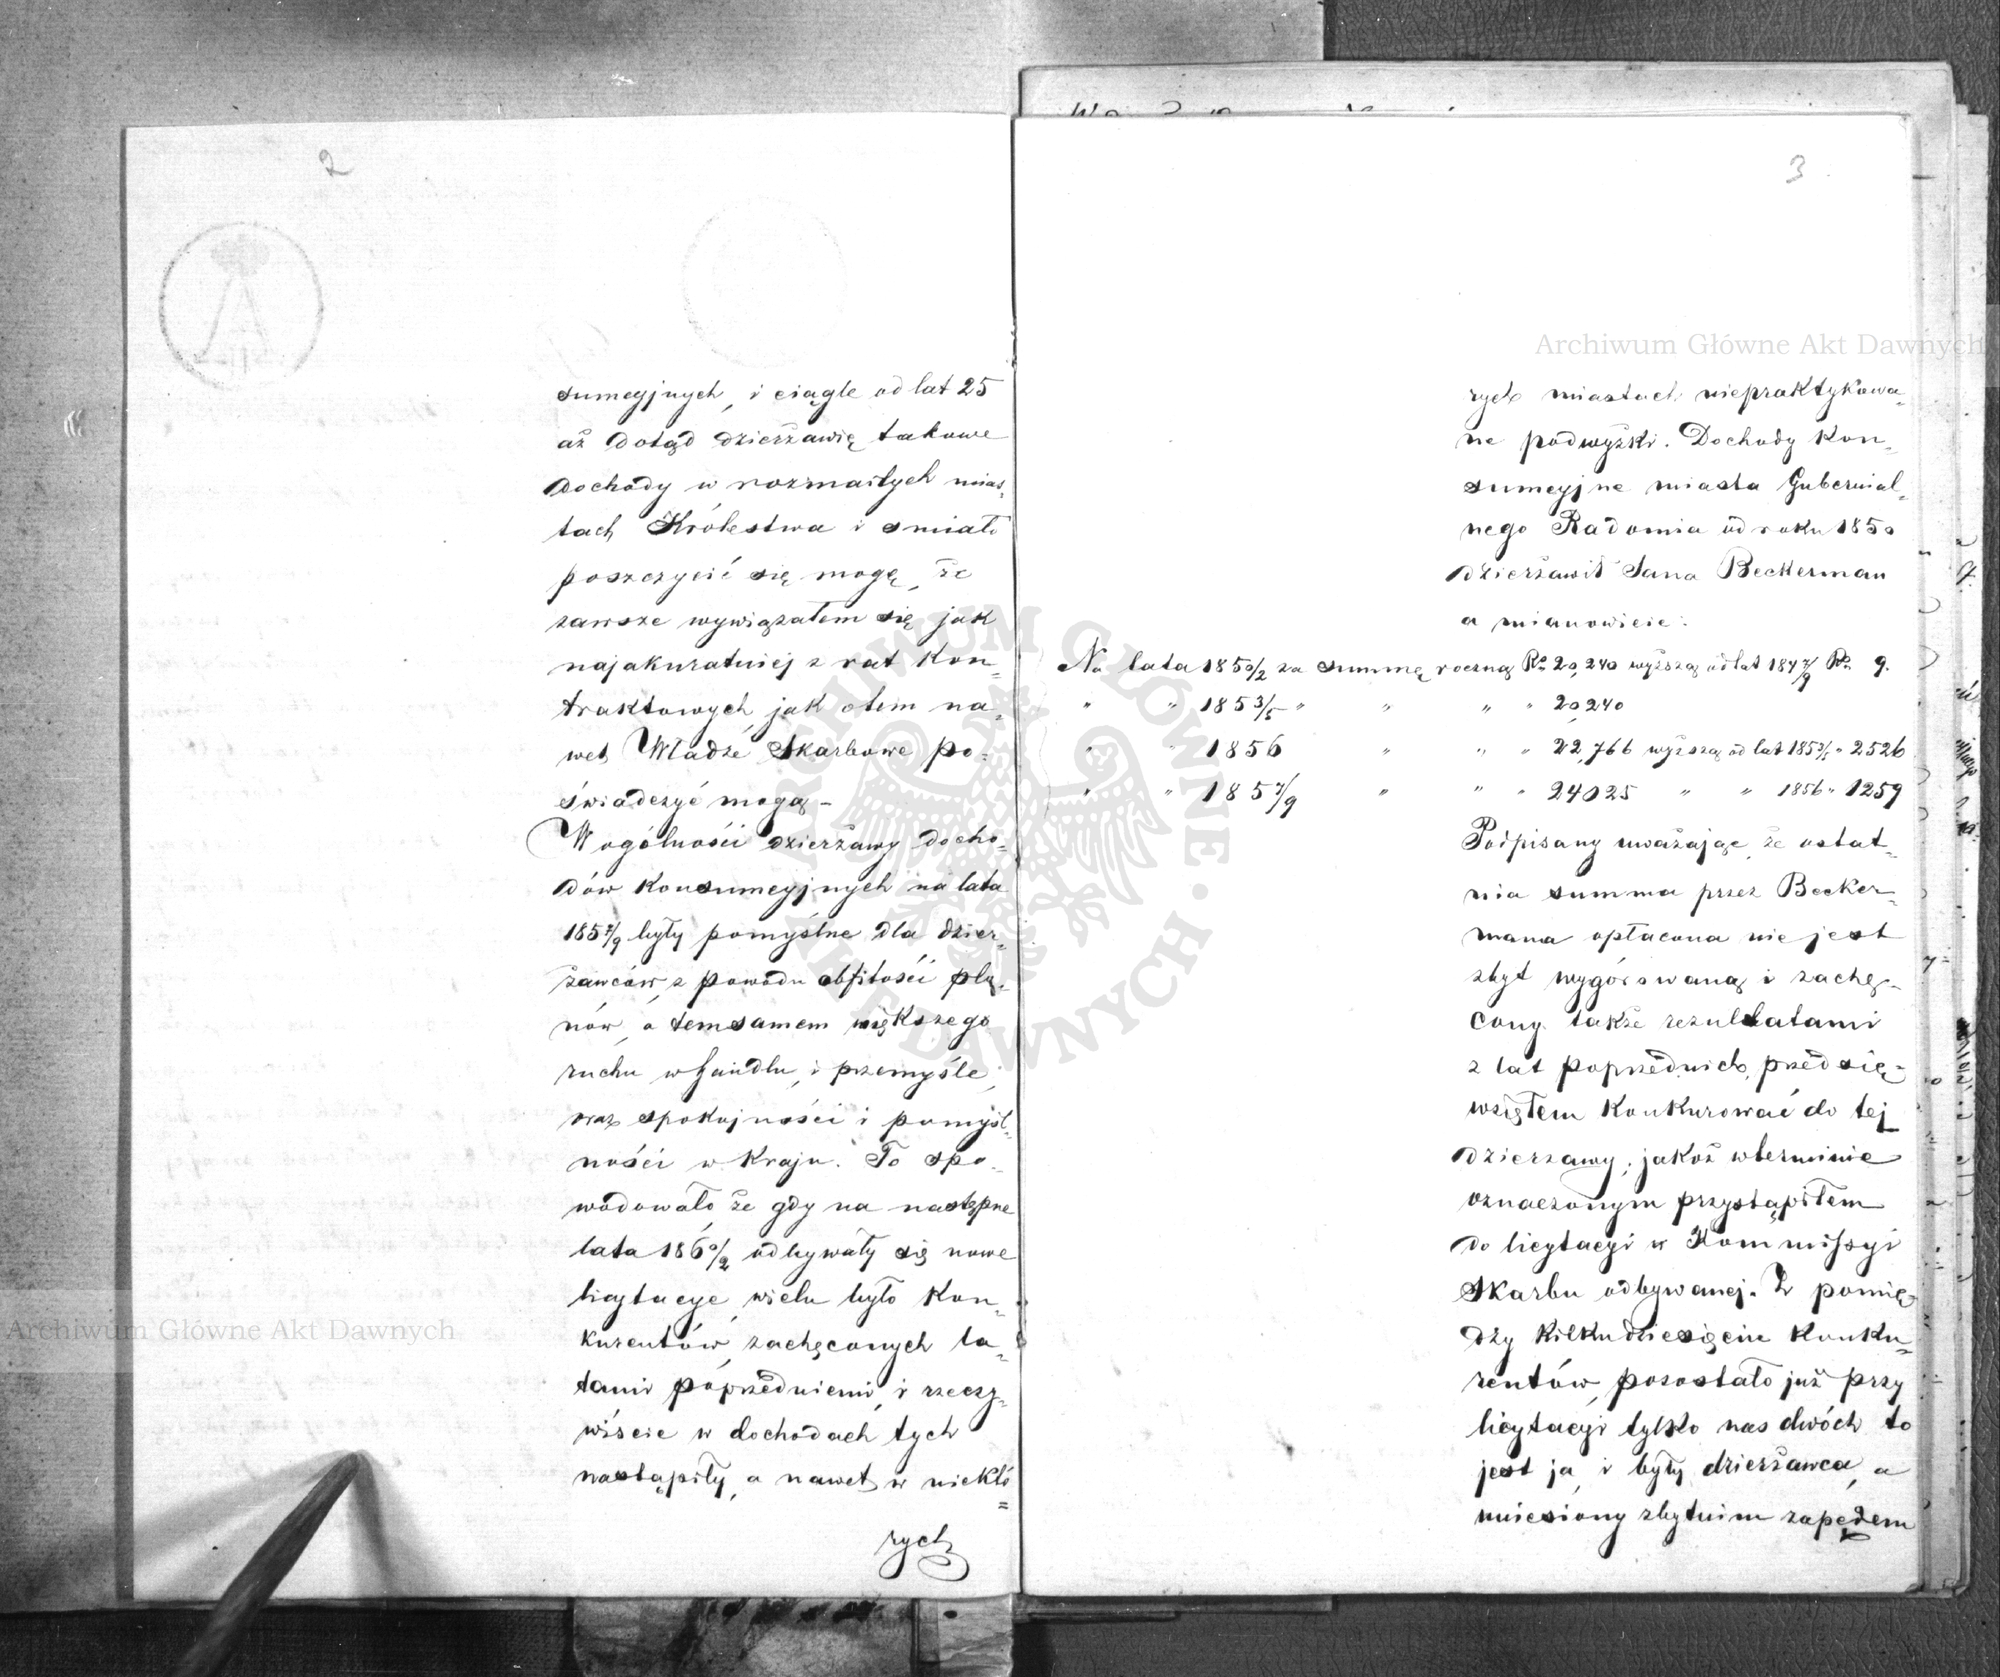 2
sumcyjnych, i ciągle od lat 25
aż dotąd dzierżawię takowe
dochody w rozmaitych mias„
tach Królestwa i śmiało
poszczycić się mogę, że
zawsze wywiązałem się jak
najakuratniej z rat kon„
traktowych, jak otem na„
wet Władze Skarbowe po„
świadczyć mogą –
W ogólności dzierżawy docho„
dów konsumcyjnych na lata
1857/9 były pomyślne dla dzier„
żawców, z powodu obfitości plo„
nów, a temsamem większego
ruchu w handlu, i przemyśle,
oraz spokojności i pomyśl„
ności w kraju. To spo„
wodowało że gdy na następne
lata 1860/2 odbywały się nowe
licytacye, wielu było kon„
kurentów, zachęconych la„
tami poprzedniemi, i rzeczy„
wiście w dochodach tych
nastąpiły, a nawet w niektó=
rych
3
rych miastach niepraktykowa„
ne podwyżki. Dochody kon„
sumcyjne miasta Gubernial„
nego Radomia od roku 1850
dzierżawił Jana Beckerman
a mianowicie:
Na lata 1850/2 za summę roczną Rs 20,240 wyższą od lat 1847/9 Rs 9.
" " 1853/5 " " " " 20,240
" " 1856 " " " 22,766 wyższą od lat 1853/5 " 2526
" " 1857/9 " " " 24025 " " 1856 " 1259
Podpisany uważając, że ostat„
nia summa przez Becker„
mana opłacona nie jest
zbyt wygórowaną i zachę„
cony także rezultatami
z lat poprzednich, przedsię„
wziąłem konkurować do tej
dzierzawy, jakoż w terminie
oznaczonym przystąpiłem
do licytacyi w Kommissyi
Skarbu odbywanej. Z pomię„
dzy kilkudziesięciu konku„
rentów, pozostało już przy
licytacyi tylko nas dwóch to
jest ja, i były dzierżawca, a
uniesiony zbytnim zapędem
Archiwum Główne Akt Dawnych
Archiwum Główne Akt Dawnych
ARCHIWUM GŁÓWNE · AKT DAWNYCH ·